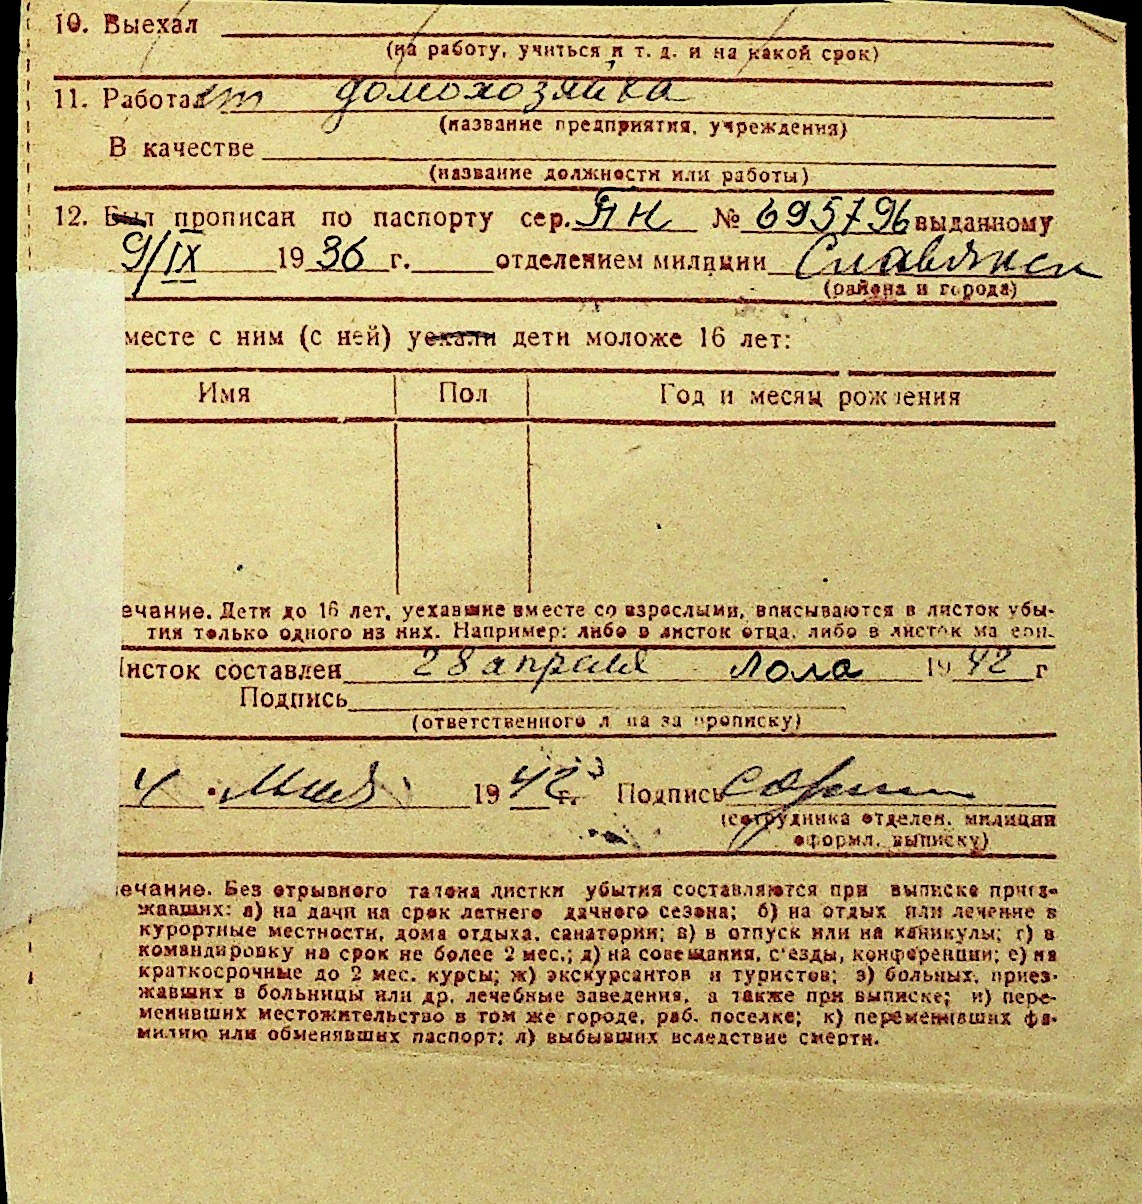 10. Выехал
(на работу, учиться и т. д. и на какой срок)
11. Работает домохозяйка
(название предприятия, учреждения)
В качестве
(название должности или работы)
12. Был прописан по паспорту сер. ПН № 695796 выданному
9/IX 1936 г. отделением милиции Славянск
(района и города)
месте с ним (с ней) уехали дети моложе 16 лет:
Имя Пол Год и месяц рождения
ечание. Дети до 16 лет, уехавшие вместе со взрослыми, вписываются в листок убы-
тия только одного из них. Например: либо в листок отца, либо в листок матери.
Листок составлен 28 апреля Лола 1942 г
Подпись
(ответственного лица за прописку)
4 мая 1942 г. Подпись
(сотрудника отделен. милиции
оформл. выписку)
ечание. Без отрывного талона листки убытия составляются при выписке приез-
жавших: а) на дачи на срок летнего дачного сезона; б) на отдых или лечение в
курортные местности, дома отдыха, санатории; в) в отпуск или на каникулы; г) в
командировку на срок не более 2 мес.; д) на совещания, с'езды, конференции; е) на
краткосрочные до 2 мес. курсы; ж) экскурсантов и туристов; з) больных, приез-
жавших в больницы или др. лечебные заведения, а также при выписке; и) пере-
менивших местожительство в том же городе, раб. поселке; к) переменивших фа-
милию или обменявших паспорт; л) выбывших вследствие смерти.